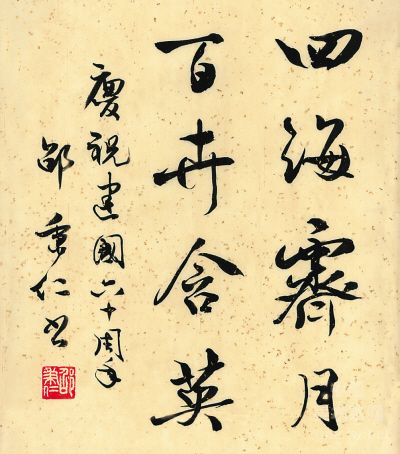 四海霽月
百卉含英
慶祝建國六十周年
邵秉仁书